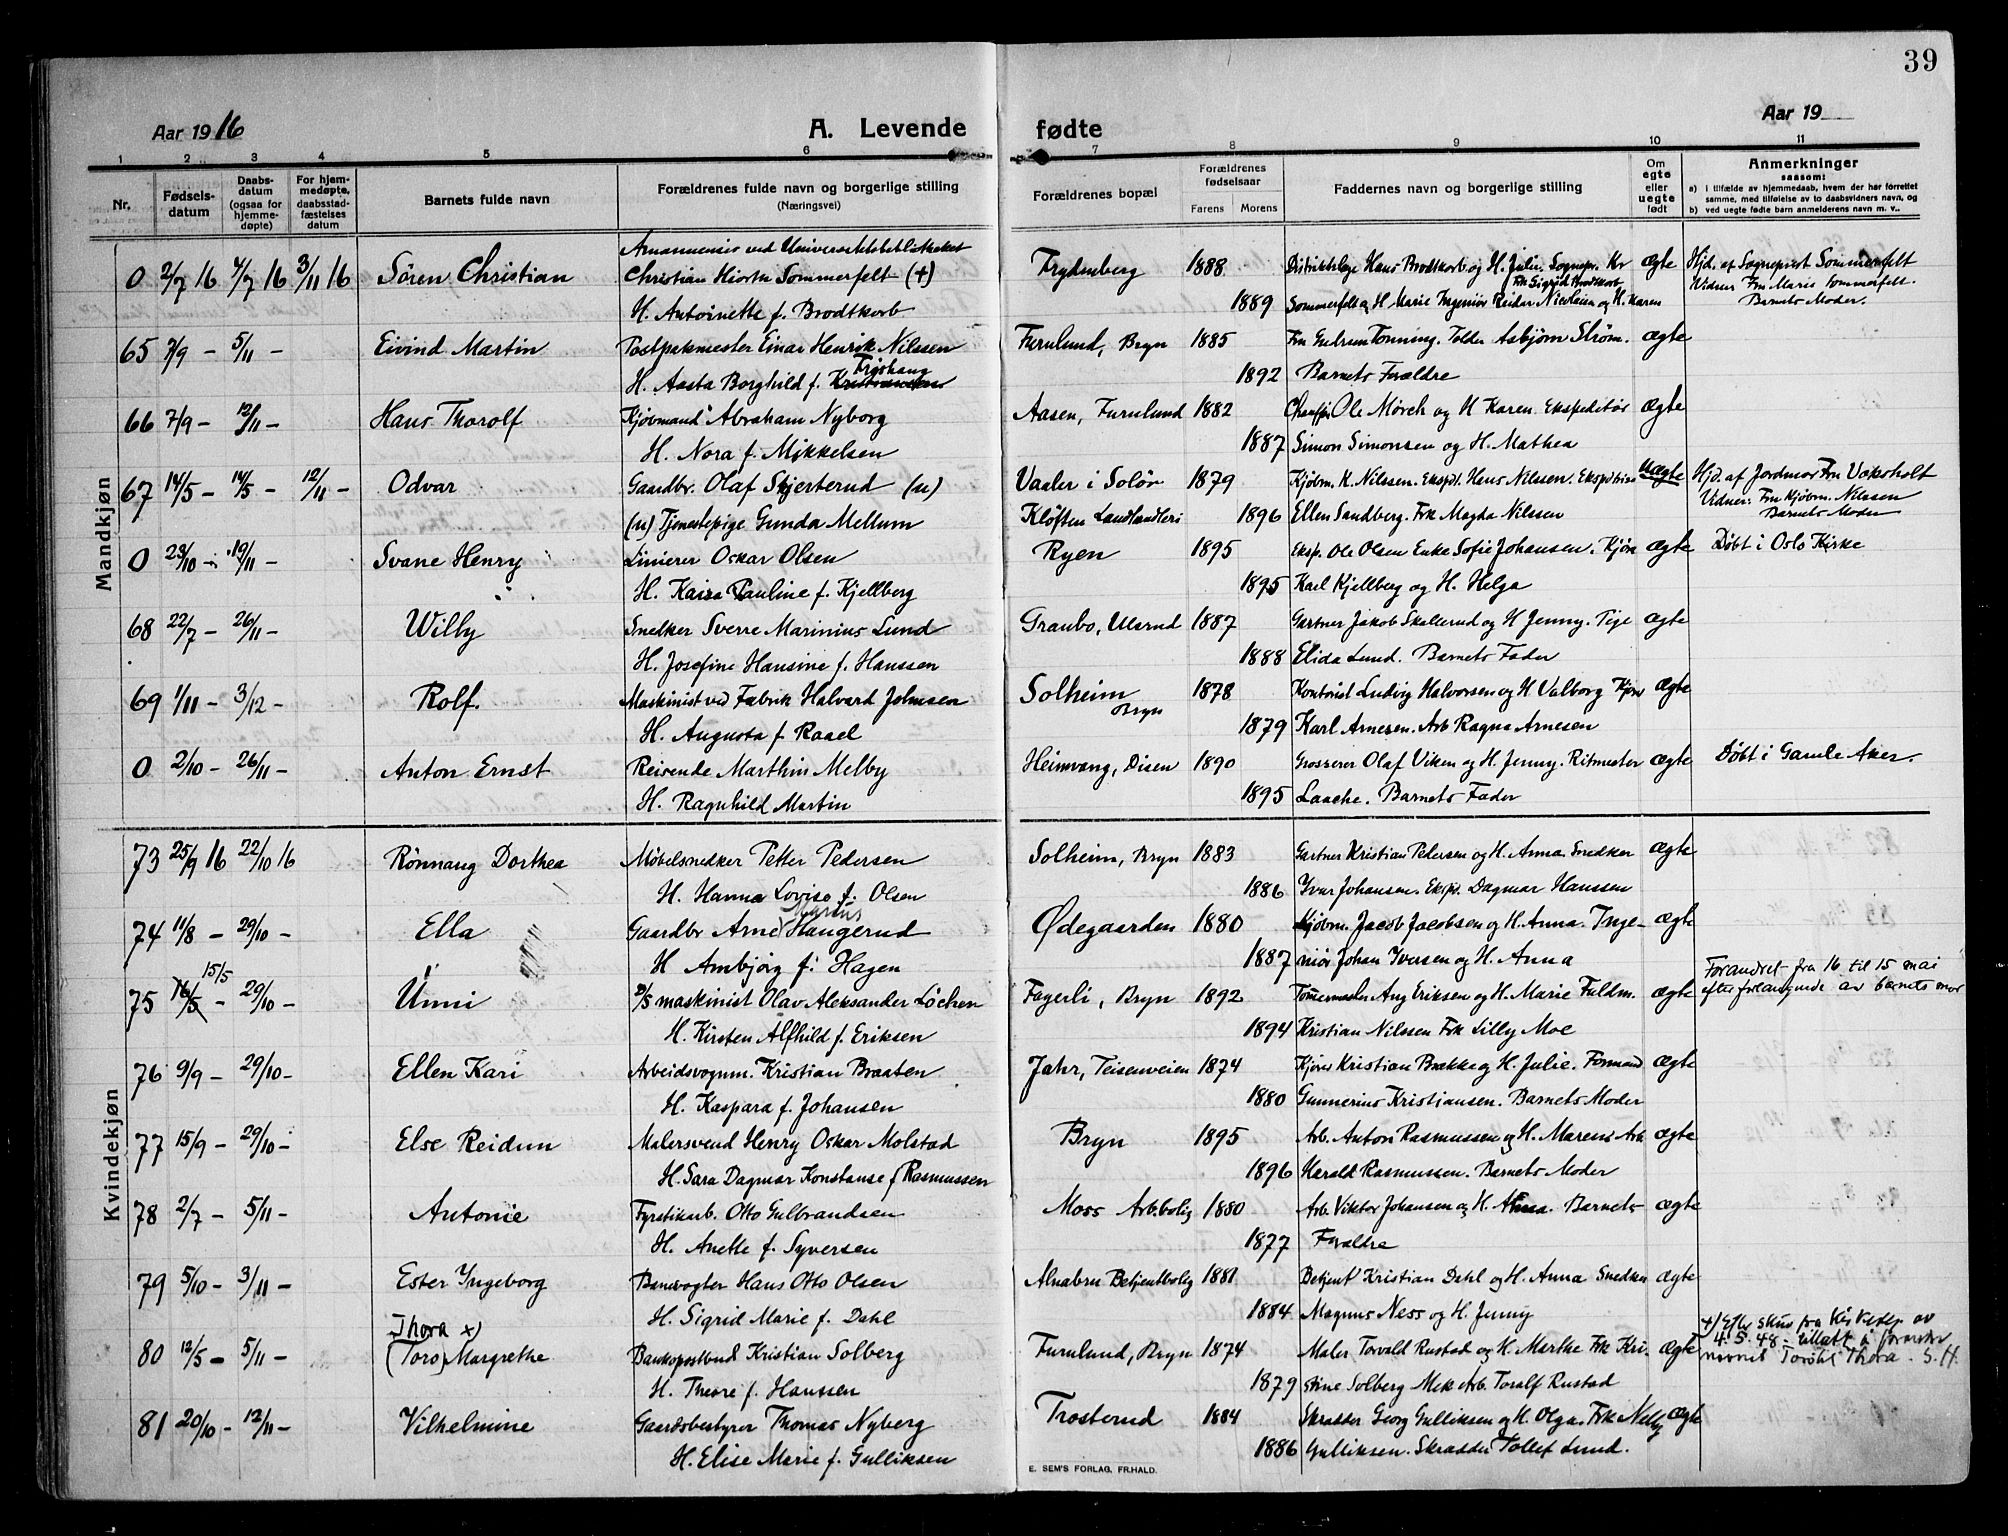 39
Aar 1916 A. Levende fødte Aar 19
1 2 3 4 5 6 7 8 9 10 11
Nr. Fødsels-datum Daabs-datum (ogsaa for hjemme-døpte) For hjem-medøpte, daabsstad-fæstelses datum Barnets fulde navn Forældrenes fulde navn og borgerlige stilling (Næringsvei) Forældrenes bopæl Forældrenes fødselsaar Farens Morens Faddernes navn og borgerlige stilling Om egte eller uegte født Anmerkninger saasom:
a) i tilfælde av hjemmedaab, hvem der har forrettet samme, med tilføielse av to daabsvidners navn, og
b) ved uegte fødte barn anmelderens navn m. v..
Mandkjøn
Amanuensis ved Universitetsbibliotheket
0 2/7 16 4/7 16 3/11 16 Sören Christian Christian Hiorth Sommerfelt (+) Frydenberg 1888 Distriktslæge Hans Brodtkorb og H. Julie. Sognepr. Kr ægte Hjd. af Sogneprest Sommerfelt
Frk Sigrid Brodtkorb Vidner Fru Marie Sommerfelt.
H. Antoinette f. Brodtkorb 1889 Sommerfelt og H Marie Ingeniør Reidar Nicolaisen og H. Karen Barnets Moder.
65 7/9 - 5/11 - Eivind Martin Postpakmester Einar Henrik Nilssen Furulund, Bryn 1885 Fru Gudrun Tønning. Tolder Asbjørn Strøm. ægte
Frøshaug
H. Aasta Borghild f. Kristiansen 1892 Barnets Forældre
66 7/9 - 12/11 - Hans Thorolf Kjøbmand Abraham Nyborg Aasen, Furulund 1882 Chauffør Ole Mørch og H Karen Ekspeditør Ægte
H. Nora f. Mikkelsen 1887 Simon Simonsen og H. Mathea
67 14/5 - 14/5 - 12/11 - Odvar Gaardbr. Olaf Skjerterud (u) Vaaler i Solör 1879 Kjøbm. K. Nilssen. Ekspd. Hans Nilssen. Ekspeditrice Uægte Hjd. af Jordmor Fru Vaksholt
Vidner: Fru Kjøbm. Nilssen
(u) Tjenestepige Gunda Mellum Kløften Landhandleri 1896 Ellen Sandberg. Frk Magda Nilssen Barnets Moder
0 23/10 - 19/11 - Svane Henry Linierer Oskar Olsen Ryen 1895 Eksp. Ole Olsen Enke Sofie Johansen. Kjøn ægte Døbt i Oslo Kirke
H. Kaisa Pauline f. Kjellberg 1895 Karl Kjellberg og H. Helga
68 22/7 - 26/11 - Willy Snedker Sverre Marinius Lund Granbo, Ulsrud 1887 Gartner Jakob Skallerud og H Jenny. Pige ægte
H. Josefine Hansine f. Hanssen 1888 Elida Lund. Barnets Fader
69 1/11 - 3/12 - Rolf. Maskinist ved Fabrik Halvard Johnsen Solheim Bryn 1878 Kontorist Ludvig Halvorsen og H Valborg Kjør ægte
H. Augusta f. Raael 1879 Karl Arnesen. Arb Ragna Arnesen
0 2/10 - 26/11 - Anton Ernst Reisende Marthin Melby Heimvang, Disen 1890 Grosserer Olaf Viken og H. Jenny. Ritmester ægte Døbt i Gamle Aker.
H. Ragnhild Martin 1895 Laache. Barnets Fader
Kvindekjøn
73 25/9 16 22/10 16 Rönnaug Dorthea Møbelsnedker Petter Pedersen Solheim, Bryn 1883 Gartner Kristian Pedersen og H. Anna Snedker ægte
H. Hanna Lovise f. Olsen 1886 Ivar Johansen. Eksp. Dagmar Hanssen
Marius
74 11/8 - 29/10 - Ella Gaardbr Arne Haugerud Ødegaarden 1880 Kjøbm. Jacob Jacobsen og H. Anna. Inge- ægte
H Ambjørg f. Hagen 1887 niør Johan Iversen og H. Anna
15/5 Forandret fra 16 til 15 mai
75 16/5 - 29/10 - Unni D/S maskinist Olav Aleksander Løchen Fagerli, Bryn 1892 Tømmermester Aug Eriksen og H. Marie Fuldm. ægte efter forlangende av barnets mor
H. Kirsten Alfhild f. Eriksen 1894 Kristian Nilssen Frk Lilly Moe
76 9/9 - 29/10 - Ellen Kari Arbeidsvognm. Kristian Braaten Jahr, Teisenveien 1874 Kjører Kristian Brække og H. Julie. Formand ægte
H. Kaspara f. Johansen 1880 Gunnerius Kristiansen. Barnets Moder
77 15/9 - 29/10 - Else Reidun Malersvend Henry Oskar Molstad Bryn 1895 Arb. Anton Rasmussen og H. Maren. Arb ægte
H. Sara Dagmar Konstanse f Rasmussen 1896 Harald Rasmussen. Barnets Moder
78 2/7 - 5/11 - Antonie Fyrstikarb. Otto Gulbrandsen Moss Arb.bolig 1880 Arb. Viktor Johansen og H. Anna. Barnets ægte
H. Anette f. Syversen 1877 Forældre
79 5/10 - 3/11 - Ester Ingeborg Banevogter Hans Otto Olsen Alnabru Betjentbolig 1881 Betjent Kristian Dahl og H. Anna Snedker ægte
H. Sigrid Marie f. Dahl 1884 Magnus Ness og H. Jenny
Thora x) +) Efter skriv fra av
80 12/5 - 5/11 - (Toro) Margrethe Bankopostbud Kristian Solberg Furulund, Bryn 1874 Maler Torvald Rustad og H. Marthe Frk Kri- ægte 4.5.48 - tillatt å forandre
navnet Toro til Thora. S.H.
H. Theore f. Hanssen 1879 stine Solberg Mek Arb. Toralf Rustad
81 20/10 - 12/11 - Vilhelmine Gaardsbestyrer Thomas Nyberg Trosterud 1884 Skrædder Georg Gulliksen og H. Olga. Frk Nelly ægte
H. Elise Marie f. Gulliksen 1886 Gulliksen. Skrædder Tollef Lund.
E. SEM'S FORLAG, FR.HALD.